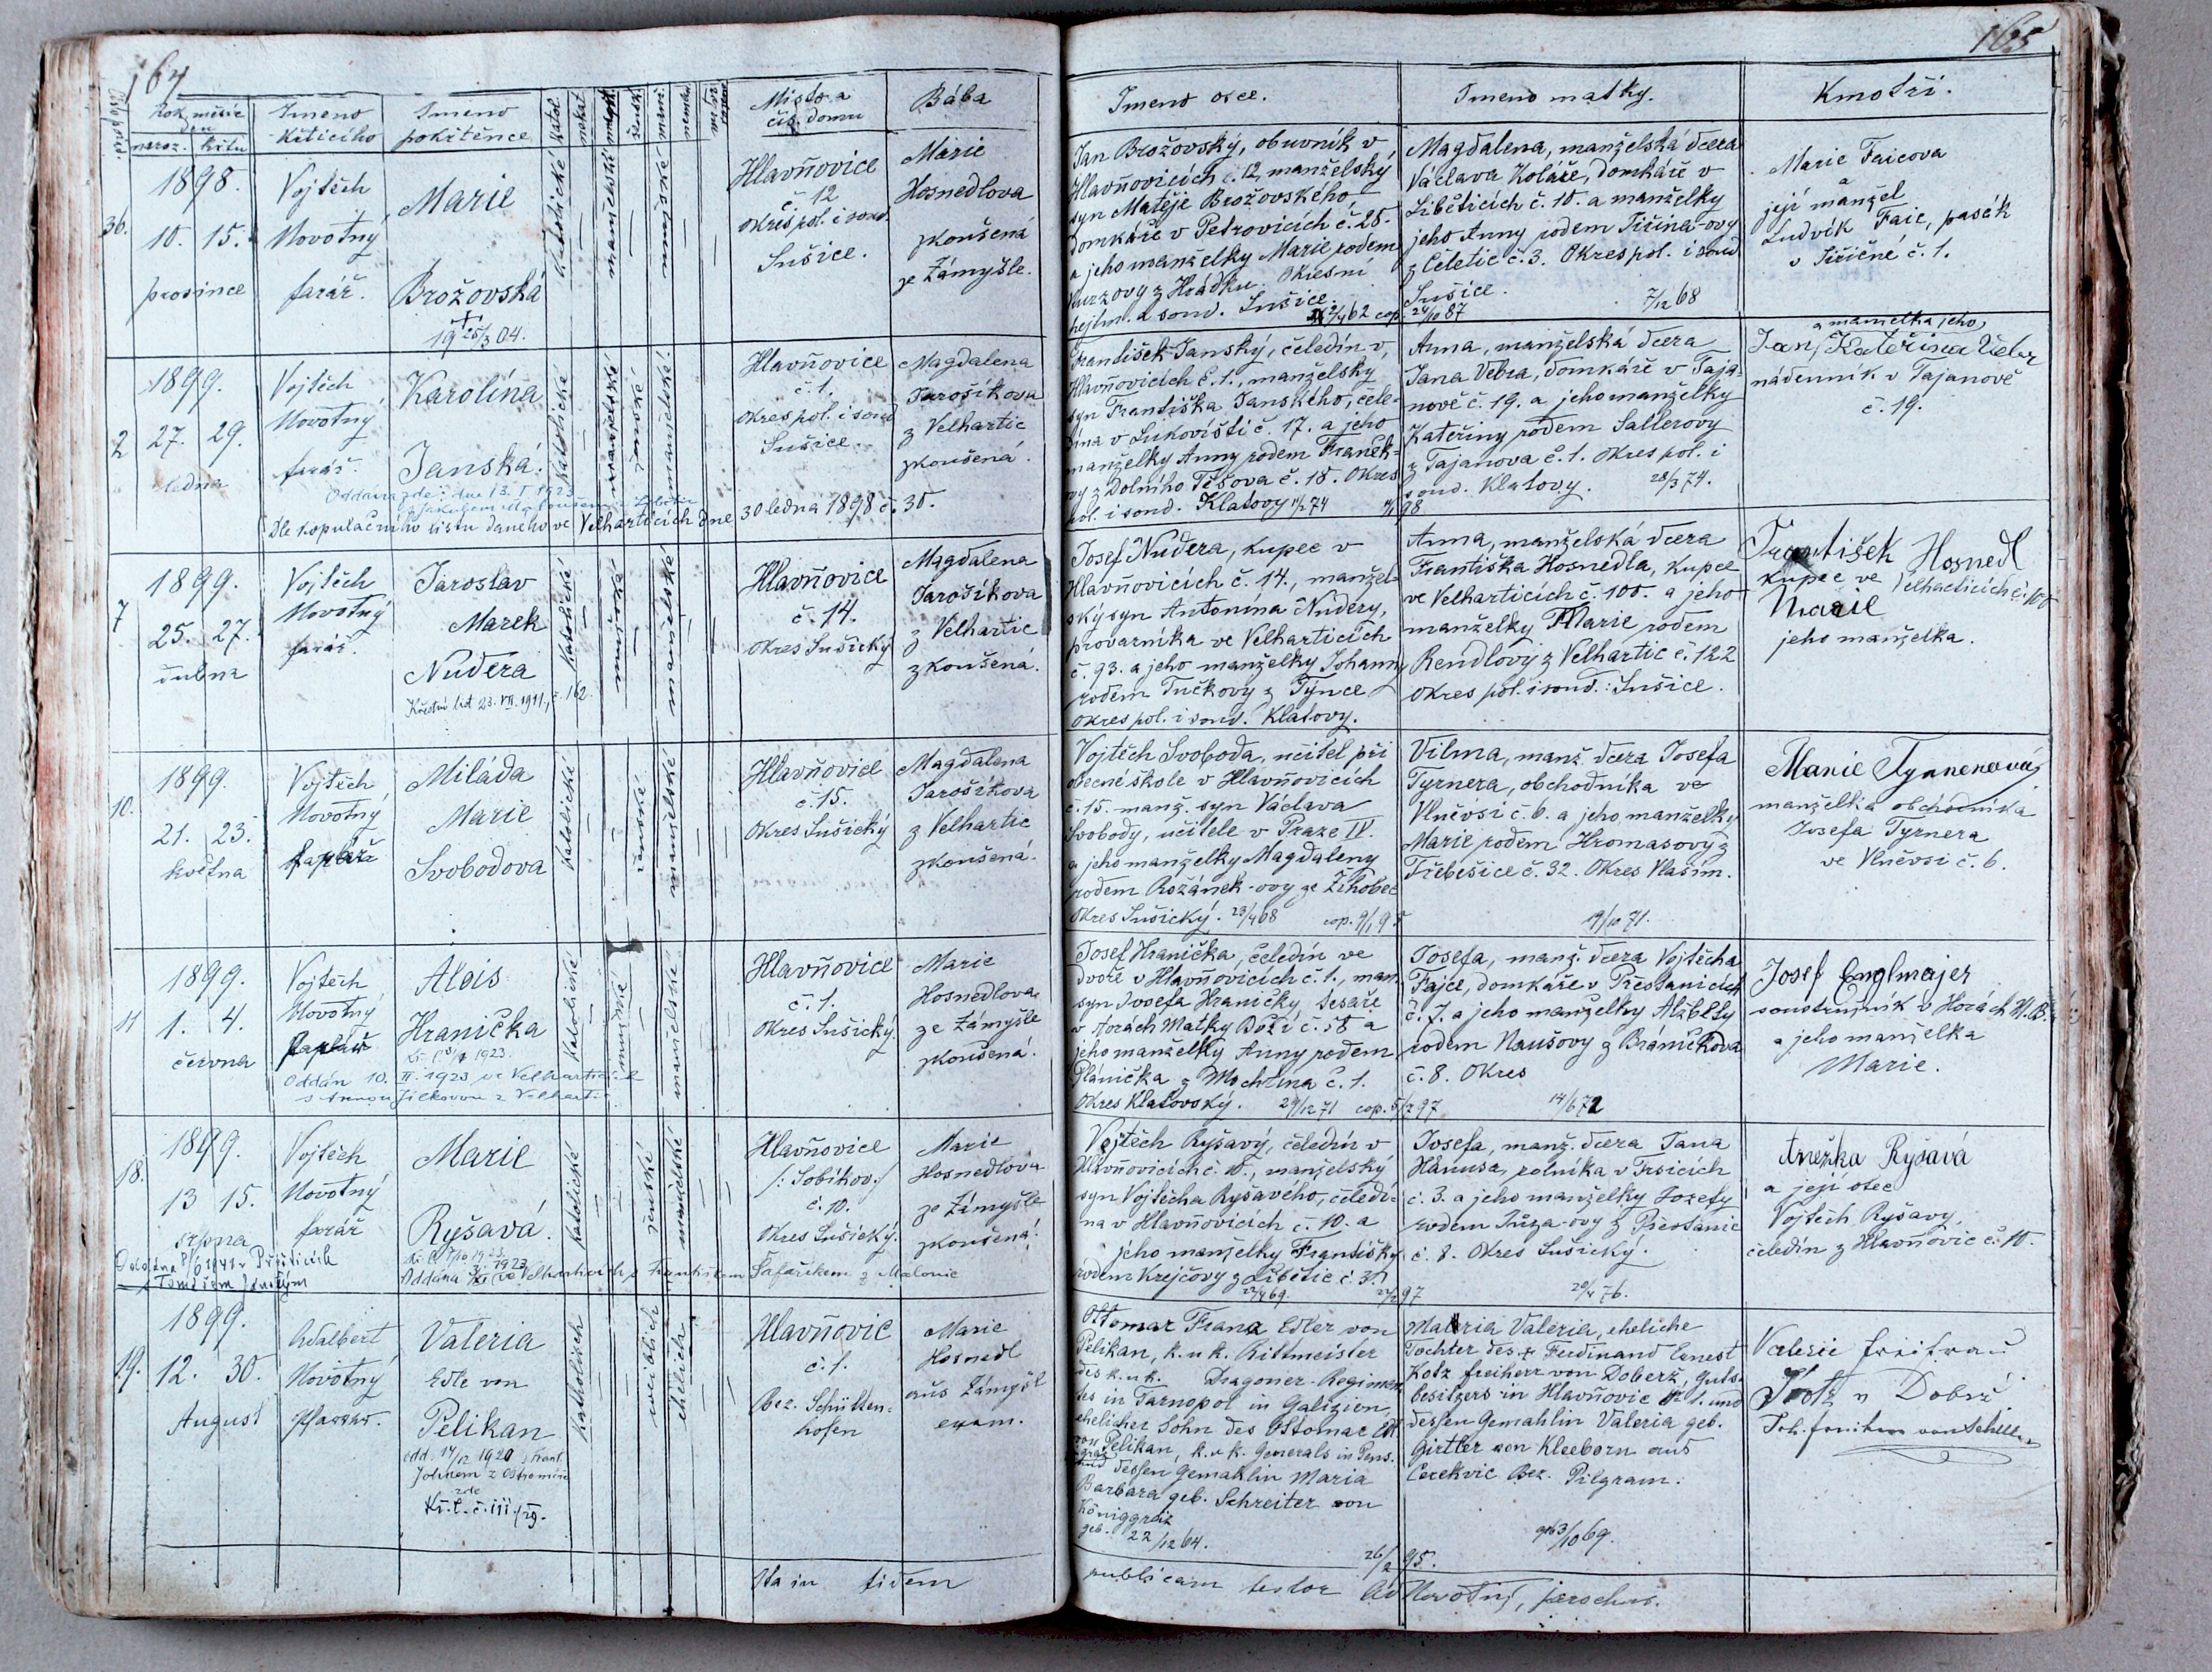 164
Rok, měsíc
den
naroz. křtu
Jmeno
křticího
Jmeno
pokřtěnce
katol.
nekat.
mužsk.
ženské
manž.
neman.
Místo a
čís. domu
Bába
36.
1898.
10. 15.
prosince
Vojtěch
Novotný
farář.
Marie
Brožovská
19 25/3 04.
katolické
manželské
Hlavňovice
č. 12
okres pol. i soud.
Sušice.
Marie
Hosnedlova
zkoušená
ze Zámyšle.
2
1899.
27. 29.
ledna
Vojtěch
Novotný
farář.
Karolína
Janská.
Oddána zde: dne 13. I 1923
katolické
ženské
manželské
Hlavňovice
č. 1.
okres pol. i soud
Sušice.
Magdalena
Jarošíkova
z Velhartic
zkoušená.
Dle kopulačního listu daného ve Velharticích dne 30 ledna 1898 č. 30.
7
1899.
25. 27.
dubna
Vojtěch
Novotný
farář.
Jaroslav
Marek
Nudera
Křestní list 23. VII. 1911, č. 162.
katolické
mužské
manželské
Hlavňovice
č. 14.
Okres Sušický
Magdalena
Jarošíkova
z Velhartic
zkoušená.
10.
1899.
21. 23.
května
Vojtěch
Novotný
Miláda
Marie
Svobodova
katolické
ženské
manželské
Hlavňovice
č. 15.
Okres Sušický
Magdalena
Jarošíkova
z Velhartic
zkoušená.
11
1899.
1. 4.
června
Vojtěch
Novotný
Alois
Hranička
Oddán 10. II. 1923 ve Velharticích
katolické
mužské
manželské
Hlavňovice
č. 1.
Okres Sušický.
Marie
Hosnedlova
ze Zámyšle
zkoušená.
18.
1899.
13 15.
srpna
Vojtěch
Novotný
farář
Marie
Ryšavá.
katolické
ženské
manželské
Hlavňovice
/: Sobíkov:/
č. 10.
Okres Sušický.
Marie
Hosnedlova
ze Zámyšle
zkoušená.
Oddána ve Velharticích s Františkem Šafaříkem z Malonic
19.
1899.
12. 30.
August
Adalbert
Novotný
Pfarrer.
Valeria
Edle von
Pelikan
odd. 14/12 1920 s Frant.
zde
Kř. l. č. 111/29.
katholisch
weiblich
ehelich
Hlavňovic
č. 1.
Bez. Schütten=
hofen
Marie
Hosnedl
aus Zámyšl
exam.
Ita in fidem
165
Jmeno otce.
Jmeno matky.
Kmotři.
Jan Brožovský, obuvník v
Hlavňovicích č. 12, manželský
syn Matěje Brožovského,
domkáře v Petrovicích č. 25.
a jeho manželky Marie rodem
Kurzovy z Hrádku. Okresní
hejtm. a soud. Sušice.
Magdalena, manželská dcera
Václava Koláře, domkáře v
Liběticích č. 10. a manželky
jeho Anny rodem Jiřina-ovy
z Čeletic č. 3. Okres pol. i soud
Sušice.
24/10 87
7/12 68
Marie Faicova
a
její manžel
Ludvík Faic, pasák
v Jiřičné č. 1.
František Janský, čeledín v
Hlavňovicích č. 1., manželský
syn Františka Janského, čele-
dína v Lukovišti č. 17. a jeho
manželky Anny rodem Franěk-
ovy z Dolního Těšova č. 18. Okres
pol. i soud. Klatovy
Anna, manželská dcera
Jana Vebra, domkáře v Taja-
nově č. 19. a jeho manželky
Kateřiny rodem Sallerovy
z Tajanova č. 1. Okres pol. i
soud. Klatovy. 28/3 74.
a manželka jeho
Jan, Kateřina Veber
nádenník v Tajanově
č. 19.
Josef Nudera, kupec v
Hlavňovicích č. 14., manžel-
ský syn Antonína Nudery,
provazníka ve Velharticích
č. 93. a jeho manželky Johanny
rodem Tučkovy z Týnce
okres pol. i soud. Klatovy.
Anna, manželská dcera
Františka Hosnedla, kupce
ve Velharticích č. 100. a jeho
manželky Marie rodem
Rendlovy z Velhartic č. 122
okres pol. i soud.: Sušice.
František Hosnedl
kupec ve Velharticích č. 100
Marie
jeho manželka.
Vojtěch Svoboda, učitel při
obecné škole v Hlavňovicích
č. 15. manž. syn Václava
Svobody, učitele v Praze IV.
a jeho manželky Magdaleny
rodem Rožánek-ovy ze Žihobec
Okres Sušický. 23/4 68 cop. 9/1 95
Vilma, manž. dcera Josefa
Tyrnera, obchodníka ve
Vlněvsi č. 6. a jeho manželky
Marie rodem Hromasovy z
Třebešice č. 32. Okres Vlašim.
19/10 71.
Marie Tyrnerová,
manželka obchodníka
Josefa Tyrnera
ve Vlněvsi č. 6.
Josef Hranička, čeledín ve
dvoře v Hlavňovicích č. 1., man.
syn Josefa Hraničky, tesaře
v Horách Matky Boží č. 58 a
jeho manželky Anny rodem
Plánička z Mochtína č. 1.
Okres Klatovský. 29/12 71 cop. 5/2 97
Josefa, manž. dcera Vojtěcha
Fajce, domkáře v Přestanicích
č. 7. a jeho manželky Alžběty
rodem Naušovy z Bráničkova
č. 8. Okres
Josef Englmajer
soustružník v Horách M. B.
a jeho manželka
Marie.
Vojtěch Ryšavý, čeledín v
Hlavňovicích č. 10., manželský
syn Vojtěcha Ryšavého, čeledí-
na v Hlavňovicích č. 10. a
jeho manželky Františky
rodem Krejčovy z Libětic č. 31.
Josefa, manž. dcera Jana
Hánusa, rolníka v Trsicích
č. 3. a jeho manželky Jozefy
rodem Růža-ovy z Přestanic
č. 8. Okres Sušický.
20/4 76.
Anežka Ryšavá
a její otec
Vojtěch Ryšavy,
čeledín z Hlavňovic č. 10.
Ottomar Franz Edler von
Pelikan, k. u. k. Rittmeister
des k. u. k. Dragoner-Regimen
tes in Tarnopol in Galizien,
ehelicher Sohn des Ottomar Edl
von Pelikan, k. u. k. Generals in Pens.
dessen Gemahlin Maria
Barbara geb. Schreiter von
Königgrätz
geb. 22/12 64.
26/2 95.
Valeria, eheliche
Tochter des Ferdinand Ernest
Kotz Freiherr von Doberz, Guts-
besitzers in Hlavňovic Nr 1. und
dessen Gemahlin Valeria geb.
Girtler von Kleeborn aus
Cerekvic Bez. Pilgram.
geb 3/10 69.
Valerie Freifrau
Kotz v Dobrz
publicam testor Ad Novotný, parochus.